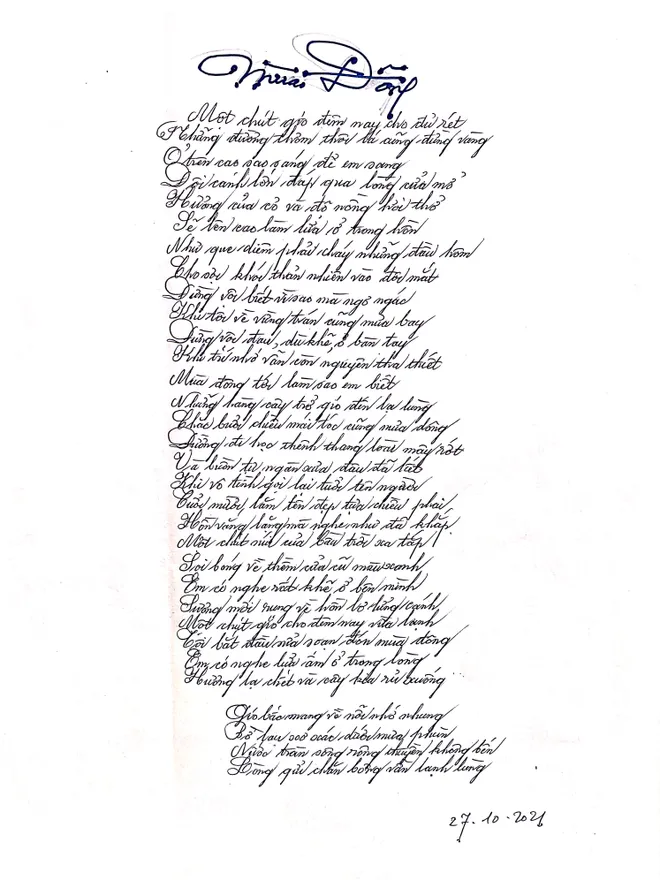 Mùa Đông
Một chút gió đêm nay cho đủ rét
Khoảng đường thơm thôi và cũng đừng vàng
Ở trên cao sao sáng để em sang
Đôi cánh lớn đáp qua lòng cửa mở
Hương của cỏ và đồ nồng hơi thở
Sẽ lên cao làm lửa ở trong hồn
Như que diêm phải cháy những đầu hôm
Cho sợi khói thản nhiên vào đôi mắt
Đừng vội biết vì sao mà ngơ ngác
Khi tôi về vầng trán cũng mưa bay
Đừng vội đau, dù khẽ, ở bàn tay
Khi trí nhớ vẫn còn nguyên tha thiết
Mùa đông tới làm sao em biết
Những hàng cây trở gió đến lạ lùng
Chắc buổi chiều mái tóc cũng mùa đông
Đường đi học thênh thang loài mây rớt
Và biển từ ngàn xưa đau đã
Khi vô tình gọi lại tuổi tên người
Tuổi mười lăm tên đẹp tựa chiều phai
Hồn văng lặng mà nghe như đã khắp
Một chút nữa của bầu trời xa tắp!
Soi bóng về thềm cửa cũ màu xanh
Em có nghe rất khẽ ở bên mình
Sương mới rung về hồn lơ lửng cánh
Một chút gió cho đêm nay vừa lạnh
Tôi bắt đầu sửa soạn đến mùa đông
Em có nghe lửa ấm ở trong lòng
Hương lạ chết và cây kia rũ xuống
Gió bấc mang về nỗi nhớ nhung
Bờ lau xơ xác dưới mưa phùn
Nước tràn sông rộng thuyền không bến
Lòng gửi chăn bông vẫn lạnh lùng
27.10.2021